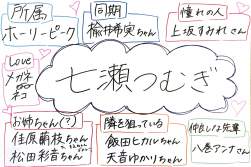 所属
ホーリーピーク
同期
楡井希実ちゃん
憧れの人
上坂すみれさん
Love
メガネ
ネコ
七瀬つむぎ
お姉ちゃん(?)
佳原萠枝ちゃん
松田彩音ちゃん
隣を狙っている
飯田ヒカルちゃん
天音ゆかりちゃん
仲良しな先輩
八巻アンナさん